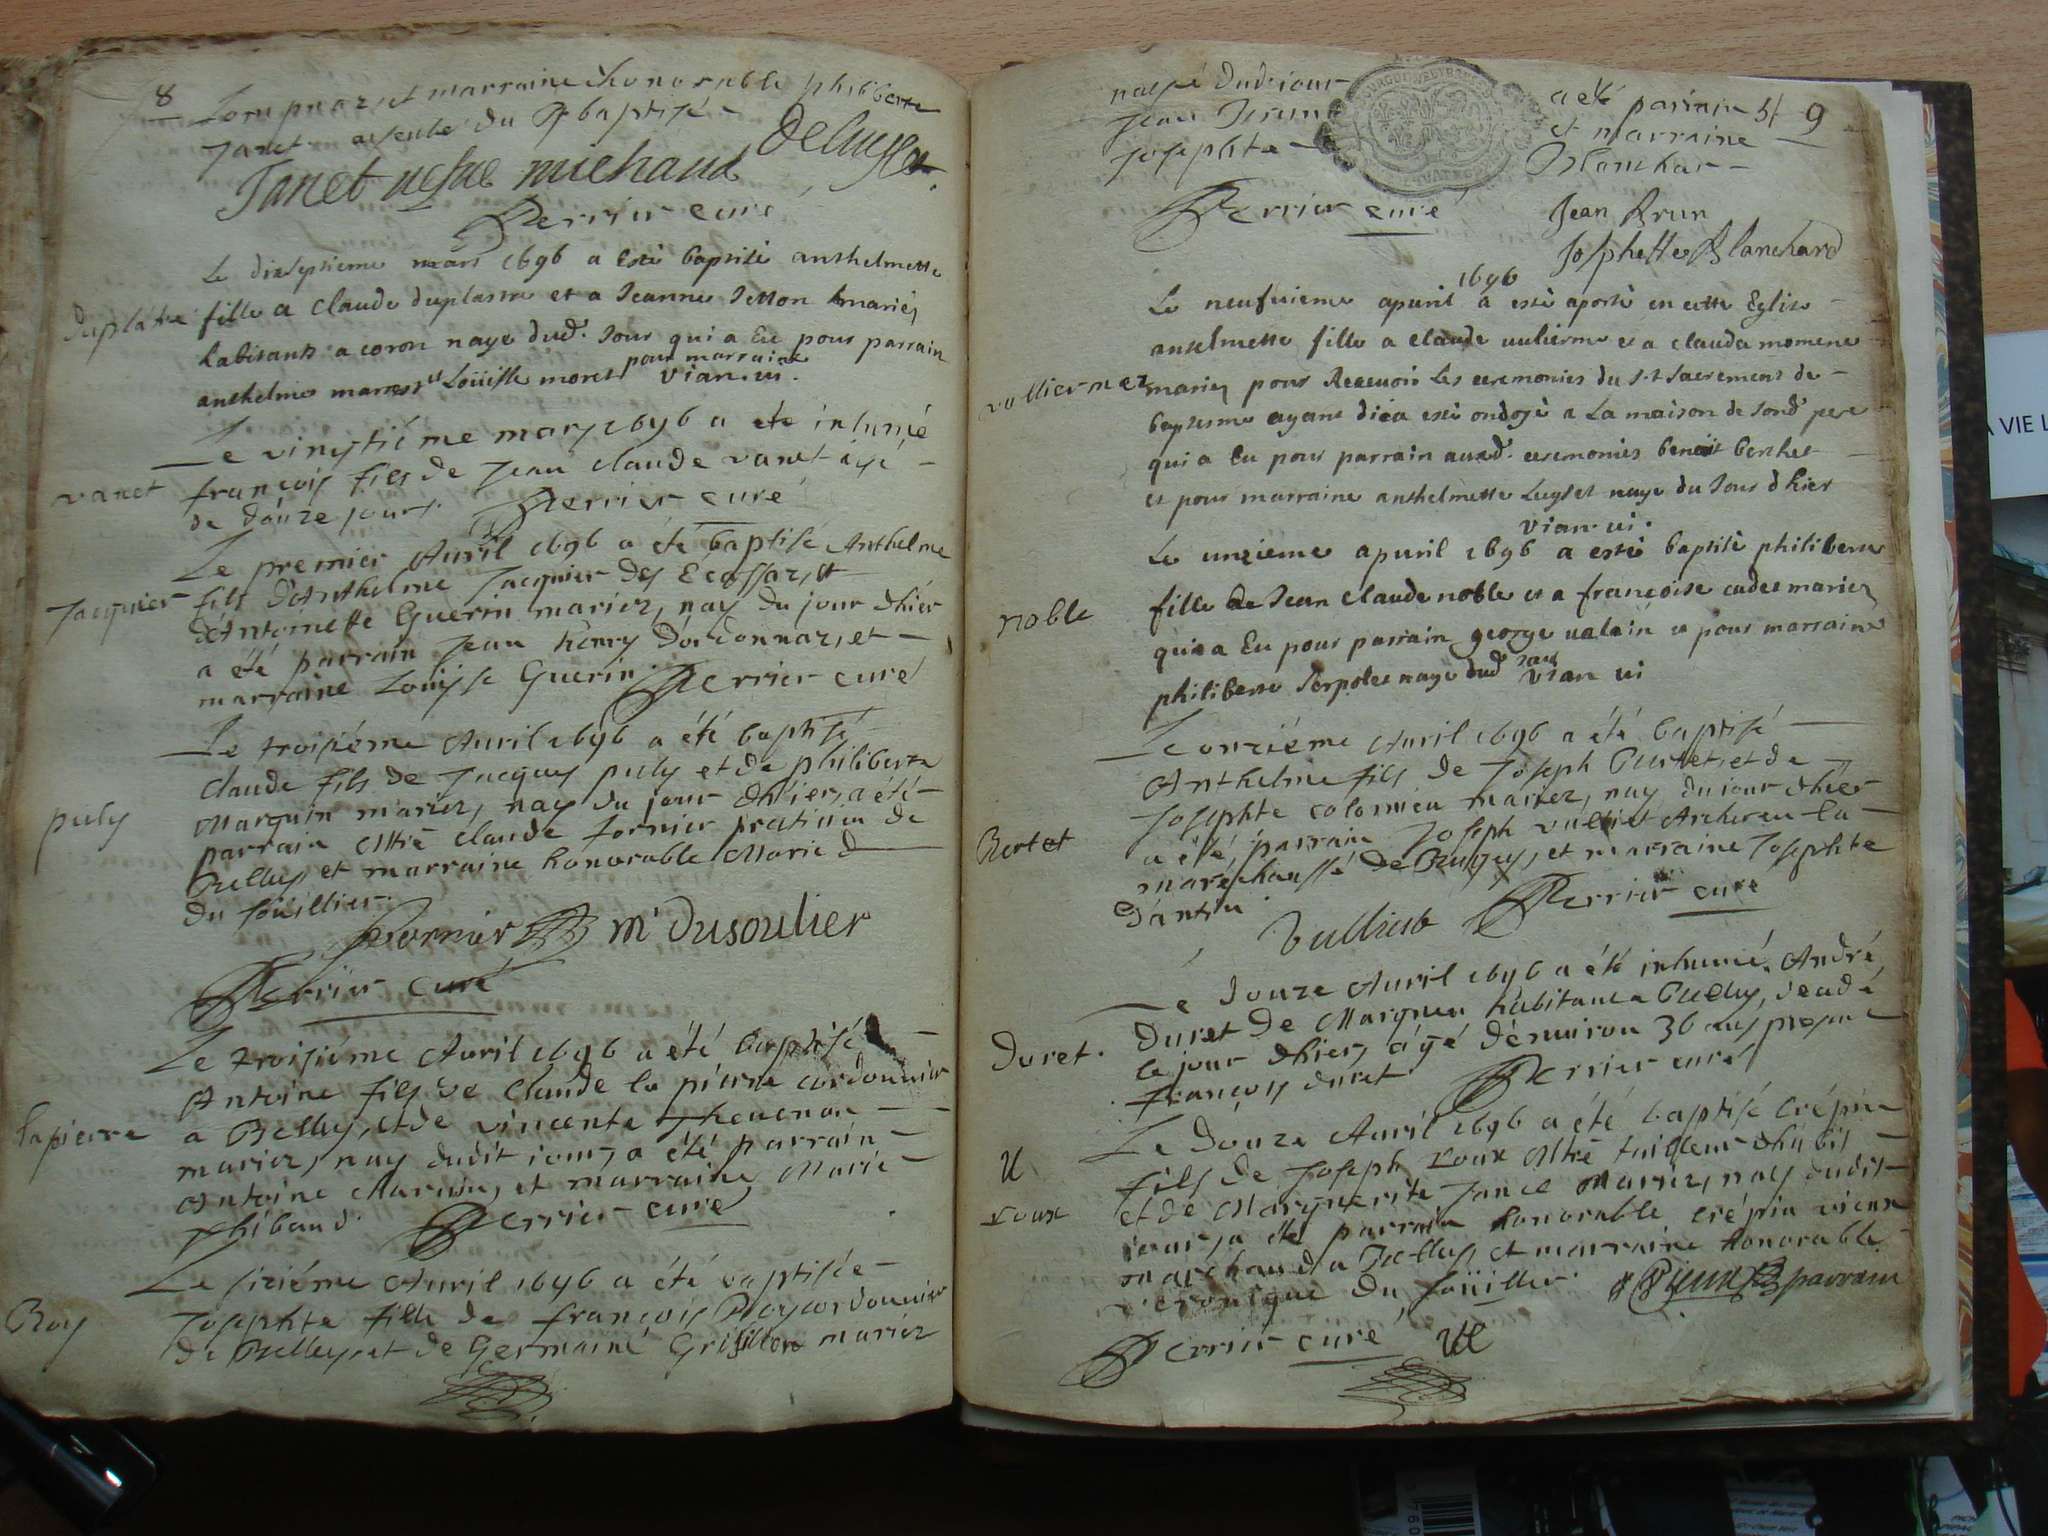 8
Lompnaz, et marraine honorable philiberte
Janet ayeule du Bbaptisé
Janet vefve michaud
Perrier curé
Le dixseptieme mars 1696 a esté baptisée anthelmette
duplatre
fille a claude duplastre et a Jeanne Jetton mariés
habitants a coron naye dud. Jour qui a Eu pour parrain
anthelme et Loüisse moret pour marraine
vian. vi.
Le vingtiéme mars 1696 a été inhumé
vanet
françois fils de Jean claude vanet âgé
de douze jours. Perrier curé
Le premier Avril 1696 a été baptisé Anthelme
Jacquier
fils d'Anthelme Jacquier des Ecassaz, et
d'Antoinette Guerin mariez, nay du jour d'hier
a été parrain Jean henry Dordonnaz, et
marraine Louysse Guerin Perrier curé
Le troisiéme Avril 1696 a été baptisé
claude fils de Jacques puly et de philiberte
puly
Marguin mariez, nay du jour d'hier, a été
parrain Mtre claude fornier praticien de
Belley, et marraine honorable Marie
du soüillier.
fornier m Dusoulier
Perrier curé
Le troisiéme Avril 1696 a été baptisé
Antoine fils de Claude la pierre cordonnier
lapierre
a Belley, et de vincente Thevenon
mariez, nay dudit jour, a été parrain
Antoine Marion, et marraine Marie
Thibaud. Perrier curé
Le siziéme Avril 1696 a été baptisée
Roy
Josephte fille de françois Roy cordonnier
de Belley, et de Germaine Grisillon mariez
9
naye dudit jour a eté parrain
Jean Brun et marraine
Josephte Blanchar
Perrier curé
Jean Brun
Josphette Blanchard
1696
Le neufvieme apuril a esté aporté en cette Eglise
anselmette fille a claude vulierme et a clauda momene
volliermez
mariez pour Recevoir les ceremonies du s.t sacrement de
baptesme ayant dieia esté ondoyé a La maison de sond. pere
qui a Eu pour parrain auxd. ceremonies benoit berthet
et pour marraine anthelmette Luyset naye du Jour d'hier
vian. vi.
Le unzieme apuril 1696 a esté baptisé philiberte
noble
fille de Jean claude noble et a françoise cadet mariez
qui a Eu pour parrain george valain et pour marraine
philiberte Serpolet naye dud. Jour
vian vi
Le onziéme Avril 1696 a été baptisé
Anthelme fils de Joseph Burtet et de
Josephte colomieu mariez, nay du jour d'hier
Bertet
a été parrain Joseph vulliet Archer en la
marechaussé de Bugey, et marraine Josephte
D'antin.
Vulliet Perrier curé
Le douze Avril 1696 a été inhumé André
Duret de Margnieu habitant a Belley, decedé
Duret.
le jour d'hier, âgé d'environ 36 ans present
françois duret Perrier curé
Le douze Avril 1696 a été baptisé crépin
fils de Joseph roux Mtre tailleur d'habis
roux
et de Marguerite Janet Mariez, nay dudit
jour, a été parrain honorable crépin vieux
marchand a Belley, et marraine honorable
veronique du soüiller.
parrain
Perrier curé